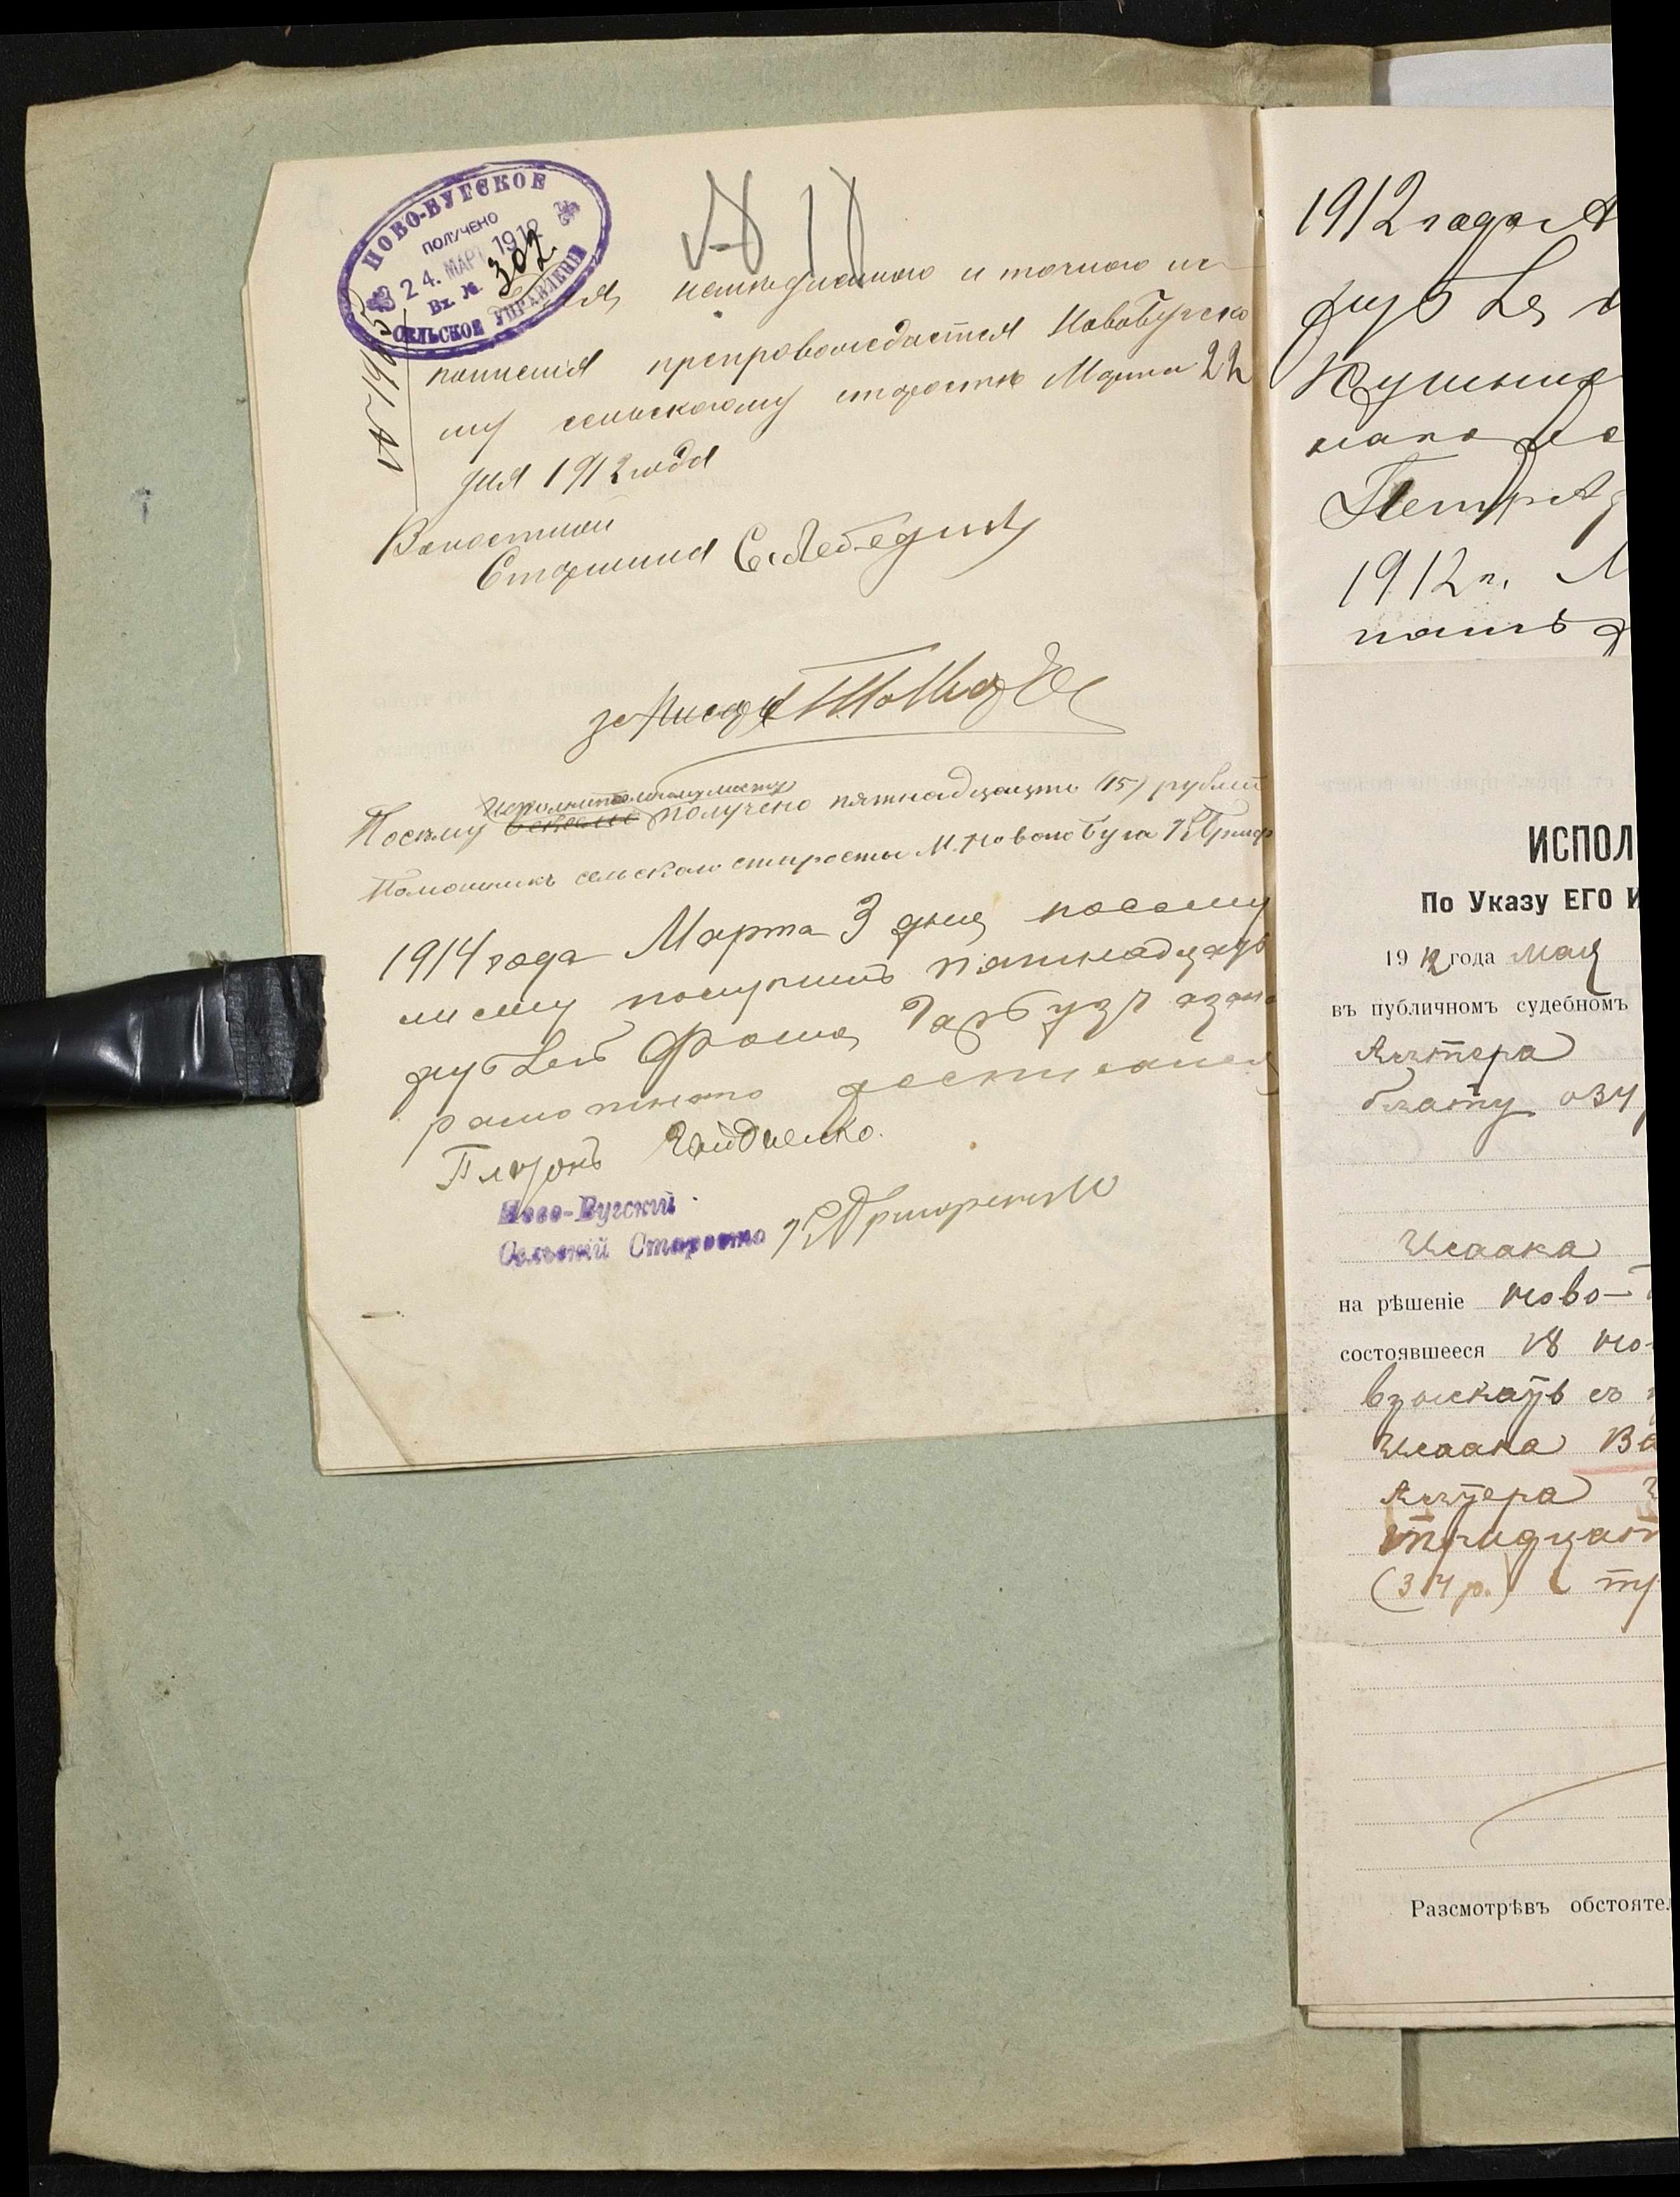 НОВО-БУГСКОЕ
ПОЛУЧЕНО
24. МАР. 1912
Вх. №. 302
СЕЛЬСКОЕ УПРАВЛЕНІЕ
Для немедленнаго и точнаго ис-
полненія препровождается Новобугско
му сельскому старостѣ Марта 22
дня 1912 года
Волостной
Старшина С. Лебедин
за Писаря
Исполнительному листу
Посему получено пятнадцать (15) рублей
Помошникъ сельскаго старосты М. Новаго Буга К Григор
1914 года Марта 3 дня посему
листу получилъ пятнадцать
рублей Фома Гарбузъ азане
рамотнаго росписался
Платонъ Гайдиенко.
Ново-Бугскій
Сельскій Староста К Григоренко
1912 года А
руб
Кушни
Петръ
1912 г. М
ИСПОЛ
По Указу ЕГО И
1912 года Мая
въ публичномъ судебномъ
Альтера
Исаака
на рѣшеніе Ново-
состоявшееся 18 но
взыскать съ
Исаака Ва
Альтера
тридцат
(34 р.)
Разсмотрѣвъ обстояте